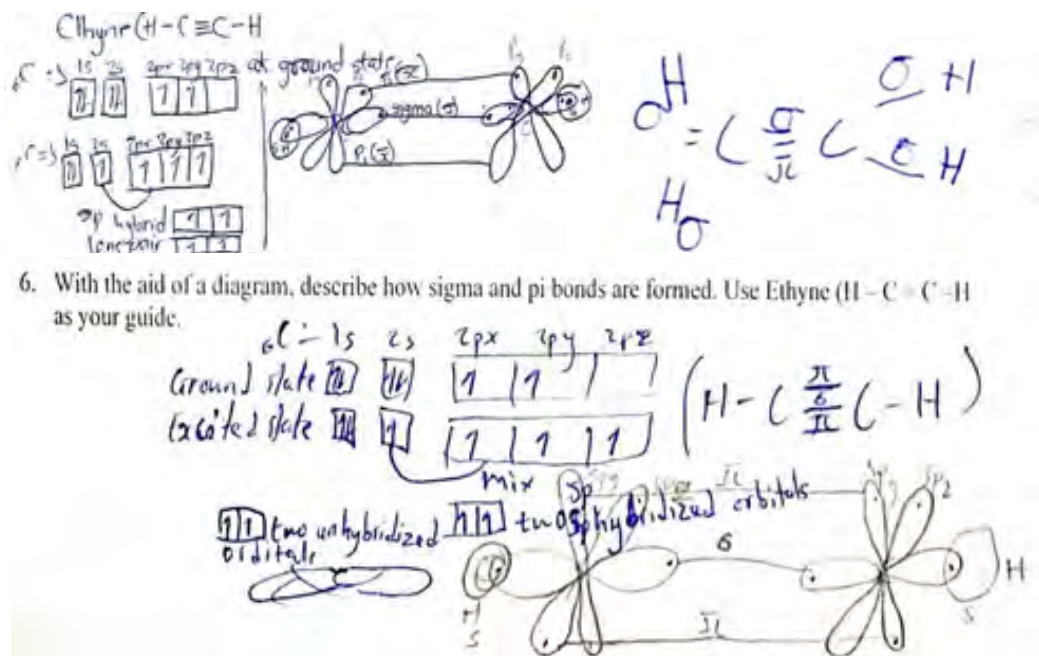 Ethyne (H-C≡C-H
₆C => 1s 2s 2px 2py 2pz at ground state
1s 2s 2px 2py 2pz
sp hybrid
lone pair
sigma (σ)
Pi (π)
H σ H
= C σ/π C
H σ σ H
6. With the aid of a diagram, describe how sigma and pi bonds are formed. Use Ethyne (H – C ≡ C –H
as your guide.
₆C = 1s 2s 2px 2py 2pz
Ground state
Excited state
mix
(H-C π/σ/π C-H)
two unhybridized
orbitals
two sp hybridized orbitals
π
σ
H
S
π
S
H